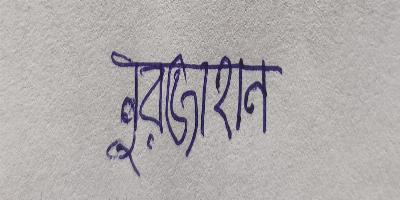 নুরজাহান